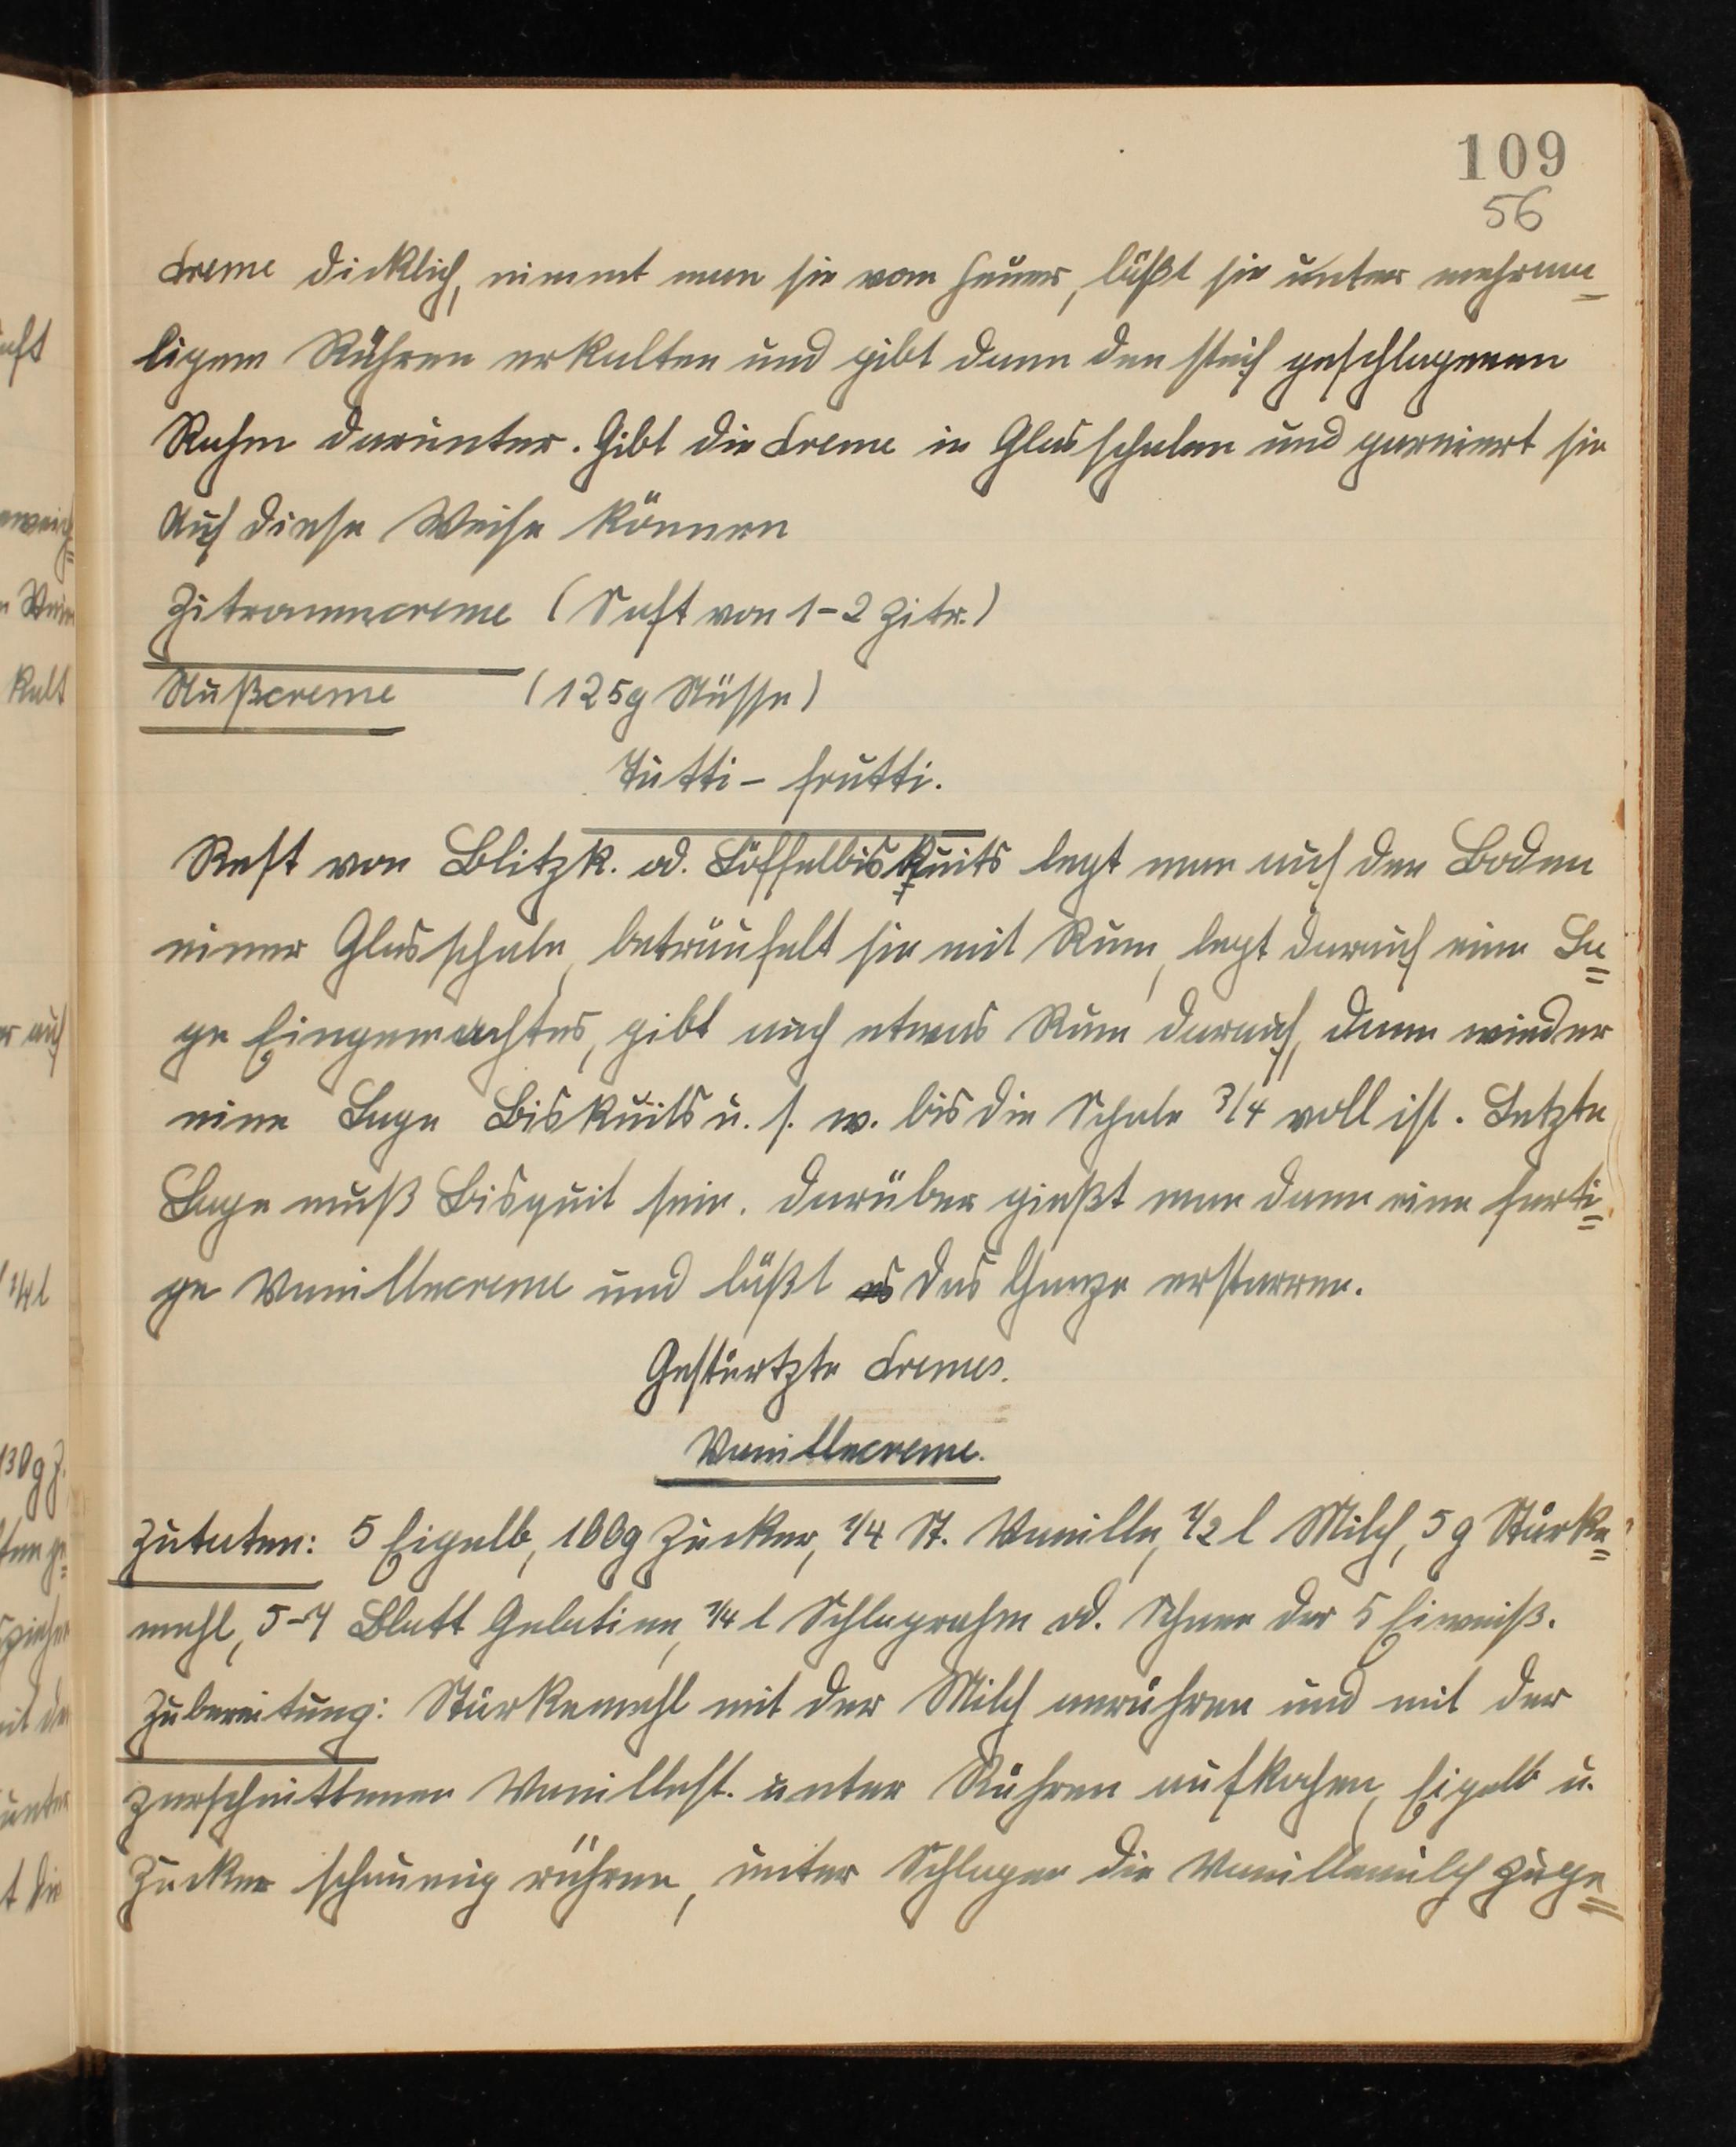 109
56
Creme dicklich, nimmt man sie vom Feuer, läßt sie unter mehrma=
ligem Rühren erkalten und gibt dann den steif geschlagenen
Rahm darunter. Gibt die Creme in Glasschalen und garniert sie
Auf diese Weise können
Zitronencreme (Saft von 1-2 Zitr.)
Nußcreme (125g Nüsse)
Tutti-frutti.
Rest von Blitzk. od. Löffelbiskuits legt man auf den Boden
einer Glasschale, beträufelt sie mit Rum, legt darauf eine La=
ge Eingemachtes, gibt auch etwas Rum darauf, dann wieder
eine Lage Biskuits u. s. w. bis die Schale 3/4 voll ist. Letzte
Lage muß Bisquit sein. Darüber gießt man dann eine ferti=
ge Vanillecreme und läßt es das Ganze erstarren.
Gestürtzte Cremes.
Vanillecreme.
Zutaten: 5 Eigelb, 100g Zucker, 1/4 St. Vanille, 1/2 l Milch, 5 g Stärke=
mehl, 5-7 Blatt Gelatine, 1/4 l Schlagrahm od. Schnee der 5 Eiweiß.
Zubereitung: Stärkemehl mit der Milch anrühren und mit der
zerschnittenen Vanillest. unter Rühren aufkochen, Eigelb u.
Zucker schaumig rühren, unter Schlagen die Vanillemilch zuge=